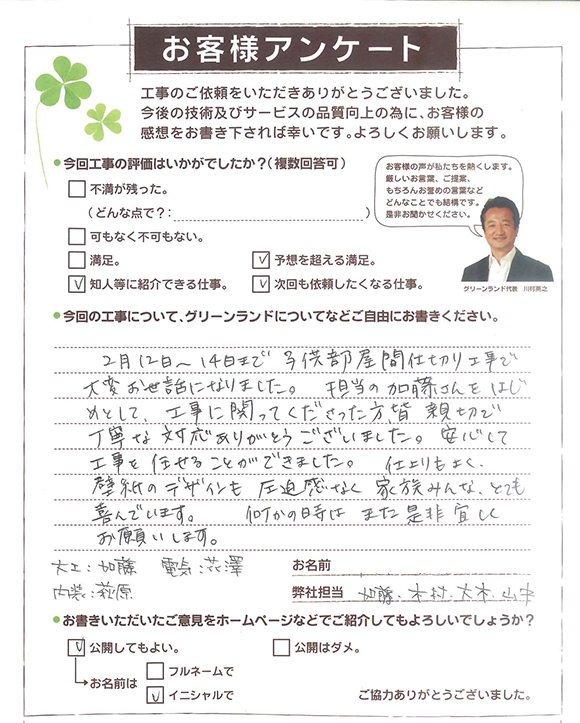 お客様アンケート
工事のご依頼をいただきありがとうございました。
今後の技術及びサービスの品質向上の為に、お客様の
感想をお書き下されば幸いです。よろしくお願いします。
●今回工事の評価はいかがでしたか?(複数回答可)
□不満が残った。
(どんな点で?: )
□可もなく不可もない。
□満足。 ☑予想を超える満足。
☑知人等に紹介できる仕事。 ☑次回も依頼したくなる仕事。
お客様の声が私たちを熱くします。
厳しいお言葉、ご提案、
もちろんお誉めの言葉など
どんなことでも結構です。
是非お聞かせください。
グリーンランド代表 川村英之
●今回の工事について、グリーンランドについてなどご自由にお書きください。
2月12日〜14日まで 子供部屋間仕切り工事で
大変お世話になりました。 担当の加藤さんをはじ
めとして、工事に関ってくださった方、皆 親切で
丁寧な対応ありがとうございました。安心して
工事を任せることができました。 仕上りもよく、
壁紙のデザインも 圧迫感なく 家族みんな、とても
喜んでいます。 何かの時は また是非宜しく
お願いします。
大工:加藤 電気:花澤
内装:萩原
お名前
弊社担当 加藤・木村・大木・山中
●お書きいただいたご意見をホームページなどでご紹介してもよろしいでしょうか?
☑公開してもよい。 □公開はダメ。
お名前は □フルネームで
☑イニシャルで
ご協力ありがとうございました。